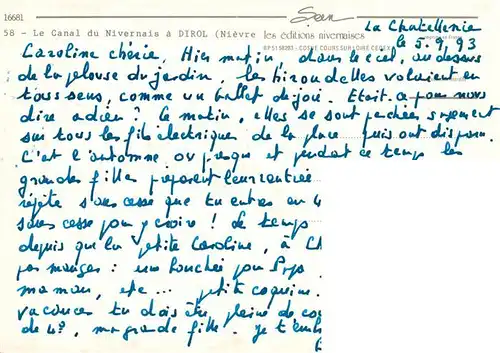 16681
58 - Le Canal du Nivernais à DIROL (Nièvre
les éditions nivernaises
La Chatellenie
le 5.9.93
Caroline chérie, Hier matin, dans le ciel, au dessus
de la pelouse du jardin, les hirondelles volaient en
tous sens, comme un ballet de joie. Etait-ce pour nous
dire adieu? Ce matin, elles se sont perchées sagement
sur tous les fils électriques de la place puis ont disparu.
C'est l'automne ou presque et pendant ce temps les
grandes filles préparent leur rentrée
répète sans cesse que tu entres en 4
sans cesse pour y croire! Le temps
depuis que la petite Caroline, à Ch
pas manger: une bouchée pour Papa
maman, etc... petite coquine.
vacances tu dois être pleine de cou
de 4°, ma grande fille. Je t'emb